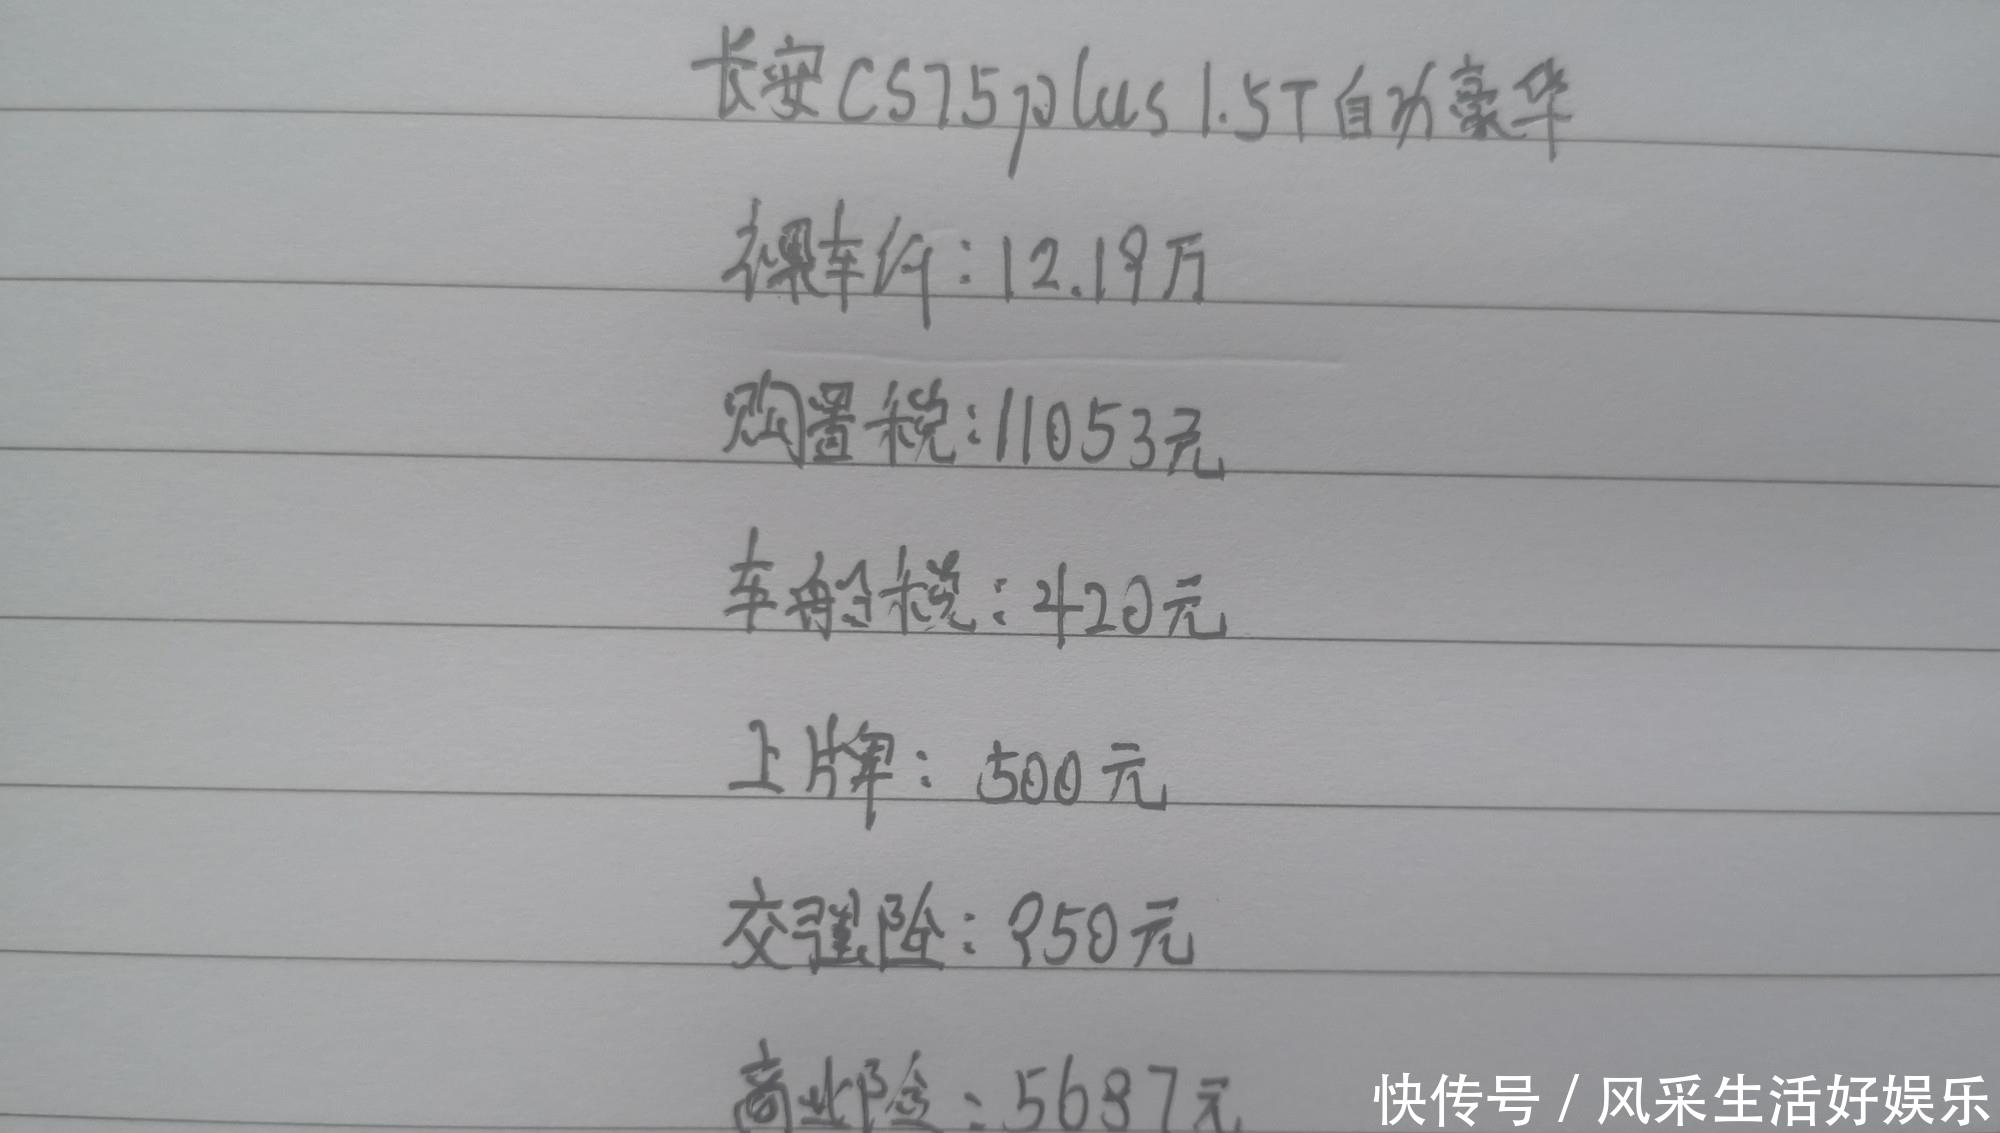 长安CS75plus 1.5T自动豪华
裸车价:12.19万
购置税:11053元
车船税:420元
上牌:500元
交强险:950元
商业险:5687元
快传号/风采生活好娱乐